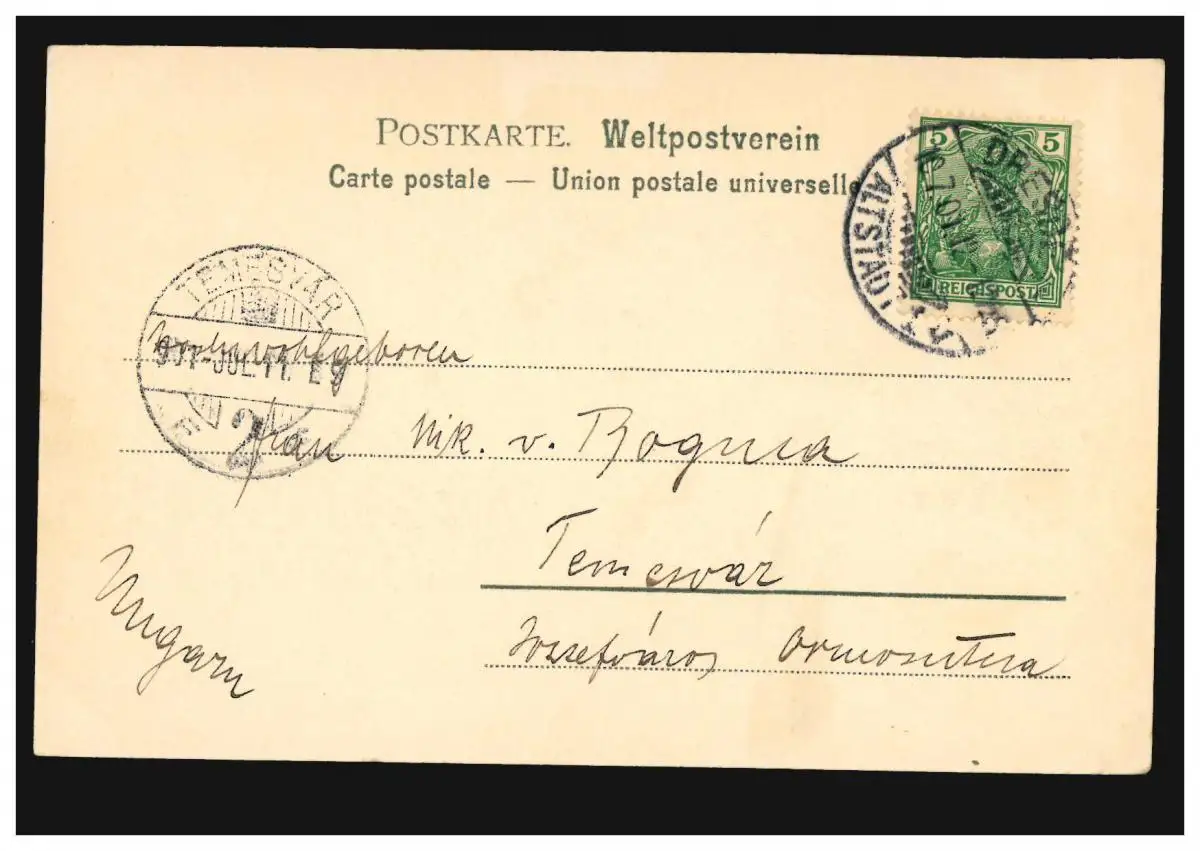 POSTKARTE. Weltpostverein
Carte postale — Union postale universelle
5 5
REICHSPOST
DRESDEN
ALTSTADT
TEMESVÁR
901 JUL. 11. E 9
Hochwohlgeboren
Frau Nik. v. Rogina
Temesvár
Jozsefváros Ormosutca
Ungarn